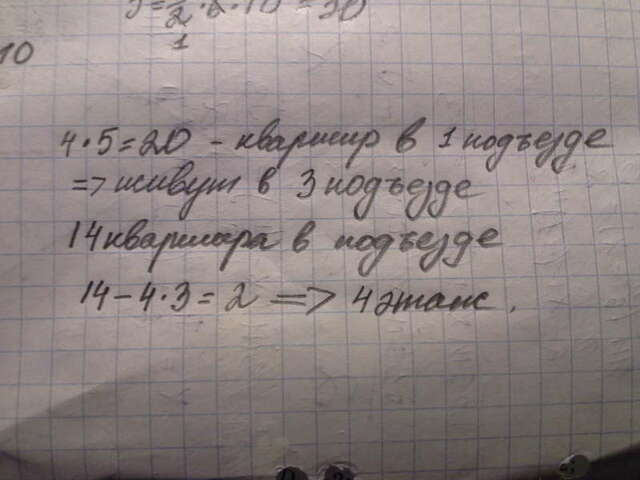 10
4·5=20 - квартир в 1 подъезде
=> живут в 3 подъезде
14 квартира в подъезде
14-4·3=2 => 4 этаж.